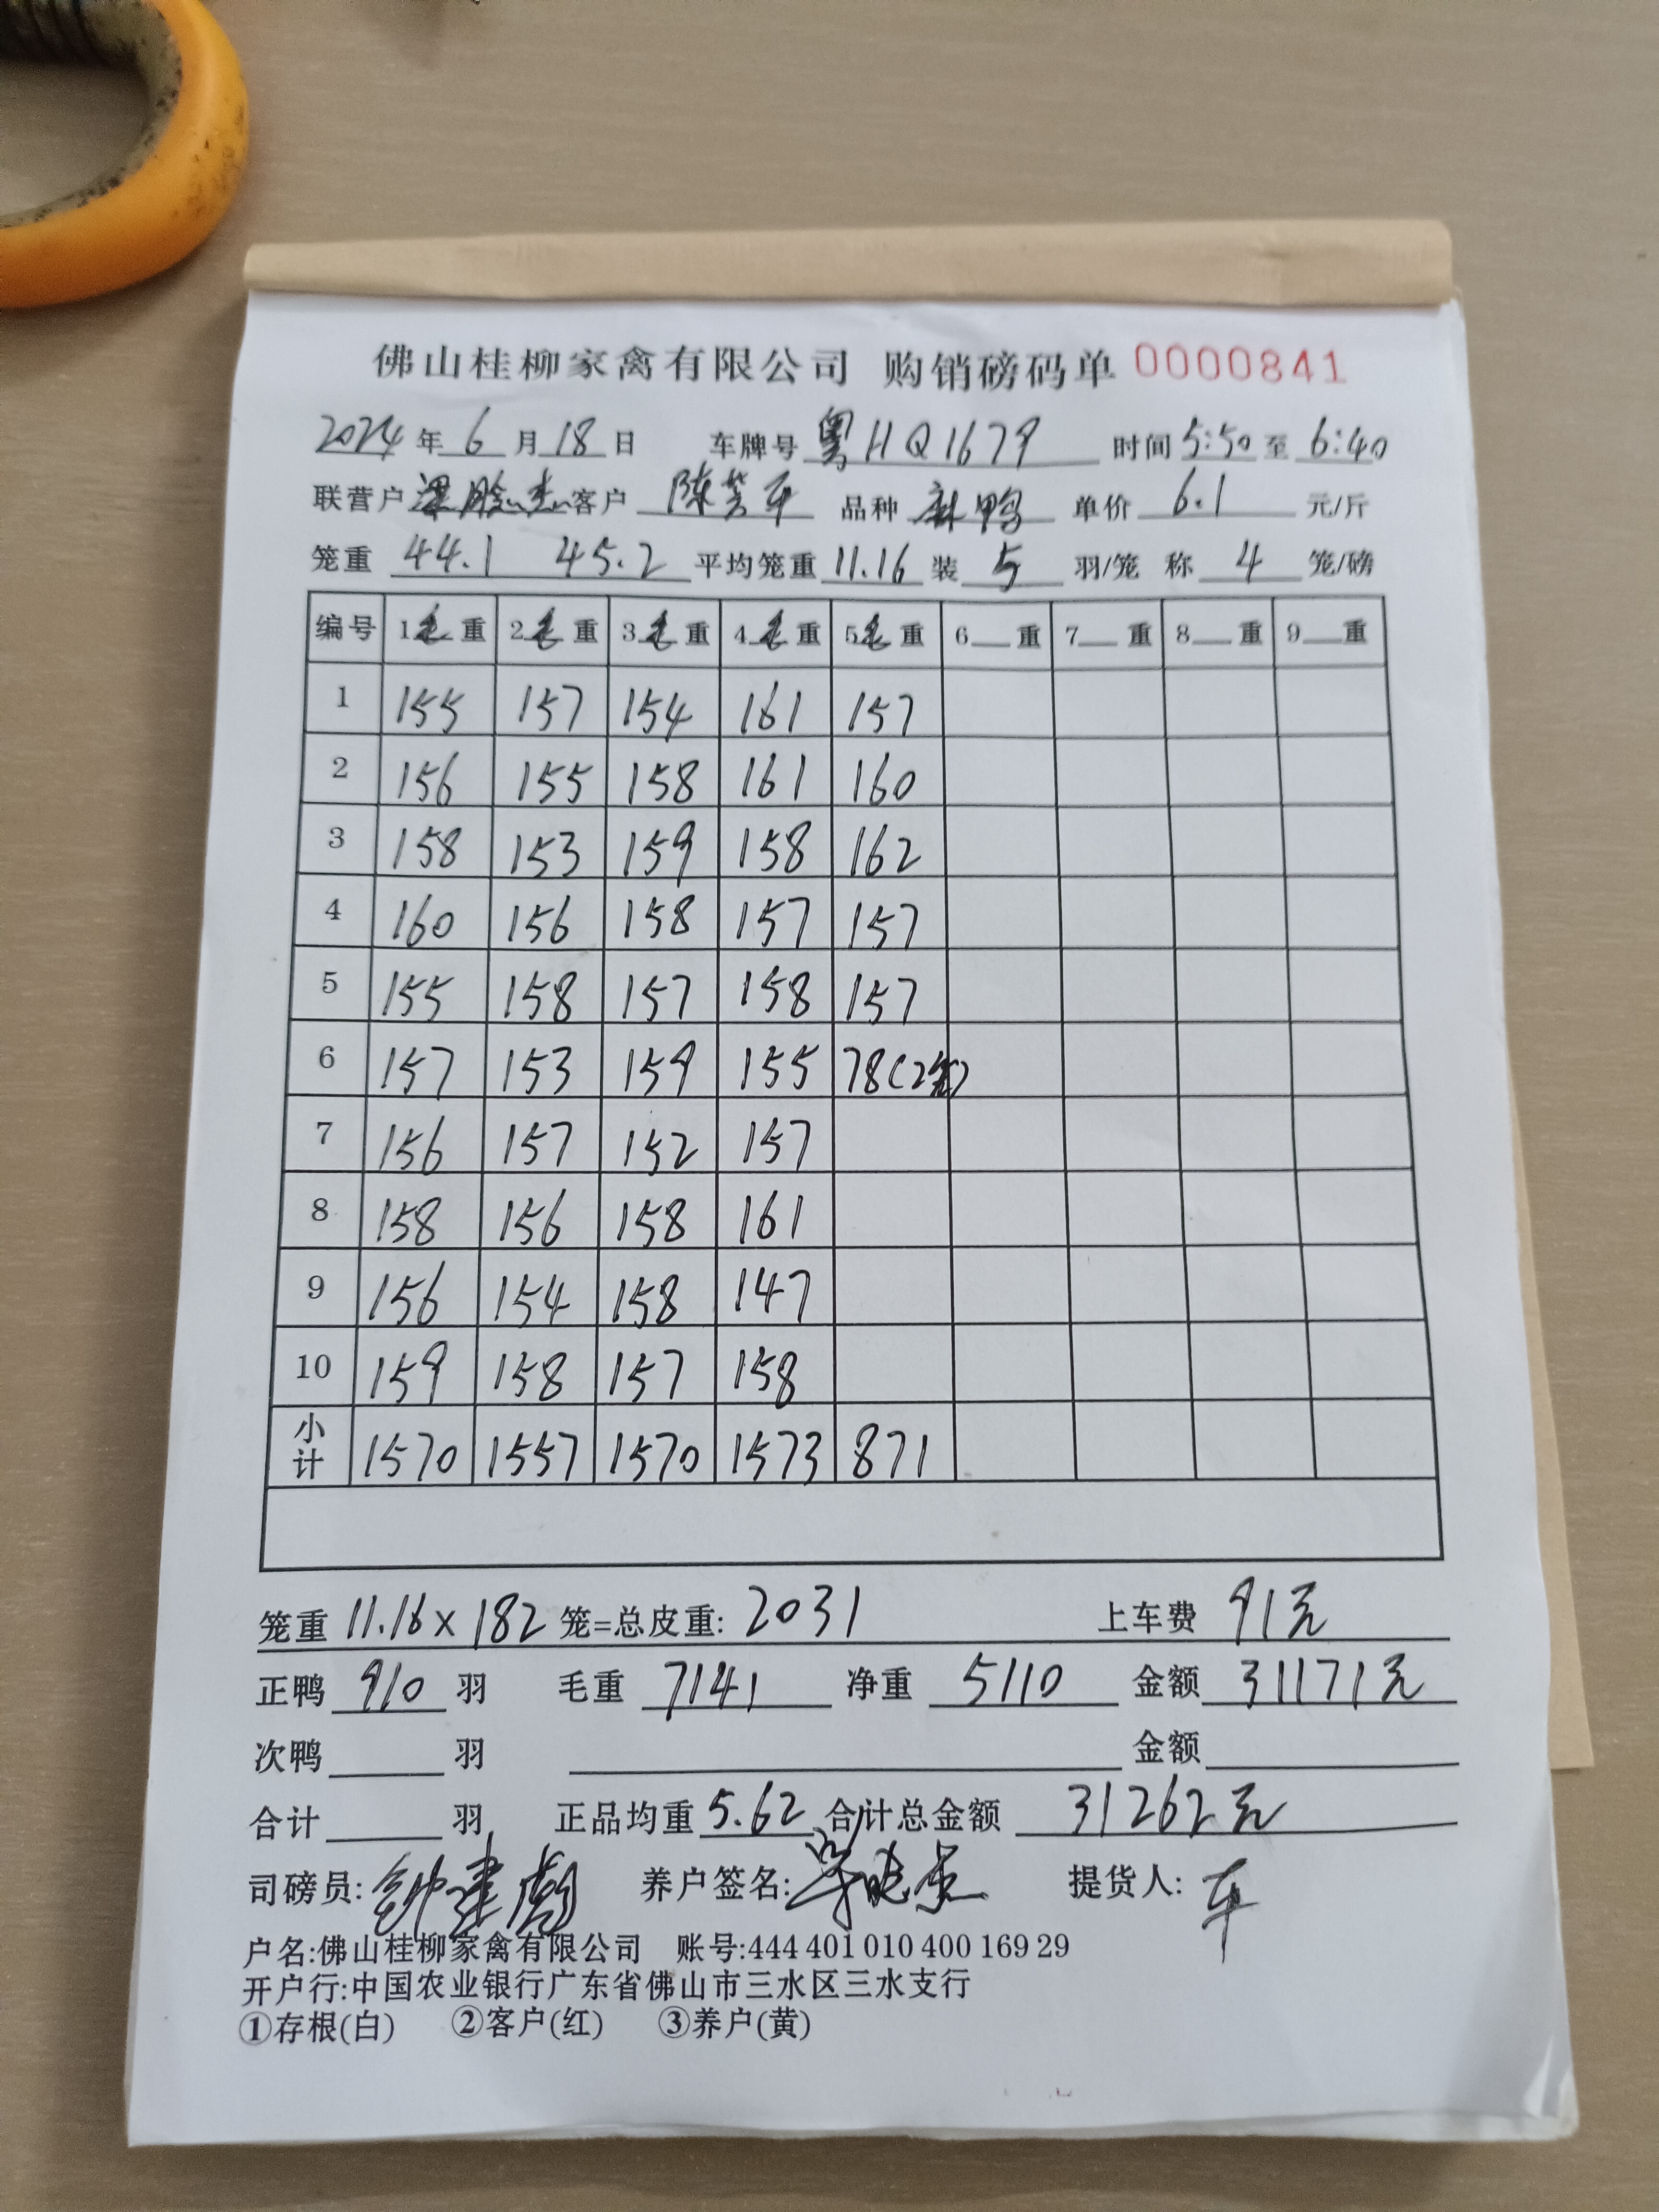 佛山桂柳家禽有限公司 购销磅码单 0000841
2024 年 6 月 18 日 车牌号 粤HQ1679 时间 5:50 至 6:40
联营户 客户 陈 平 品种 麻鸭 单价 6.1 元/斤
笼重 44.1 45.2 平均笼重 11.16 装 5 羽/笼 称 4 笼/磅
编号 1毛重 2毛重 3毛重 4毛重 5毛重 6 重 7 重 8 重 9 重
1 155 157 154 161 157
2 156 155 158 161 160
3 158 153 159 158 162
4 160 156 158 157 157
5 155 158 157 158 157
6 157 153 159 155 78(2笼)
7 156 157 152 157
8 158 156 158 161
9 156 154 158 147
10 159 158 157 158
小计 1570 1557 1570 1573 871
笼重 11.16 x 182 笼=总皮重: 2031 上车费 91元
正鸭 910 羽 毛重 7141 净重 5110 金额 31171元
次鸭 羽 金额
合计 羽 正品均重 5.62 合计总金额 31262元
司磅员: 钟建 养户签名: 提货人: 车
户名:佛山桂柳家禽有限公司 账号:444 401 010 400 169 29
开户行:中国农业银行广东省佛山市三水区三水支行
①存根(白) ②客户(红) ③养户(黄)